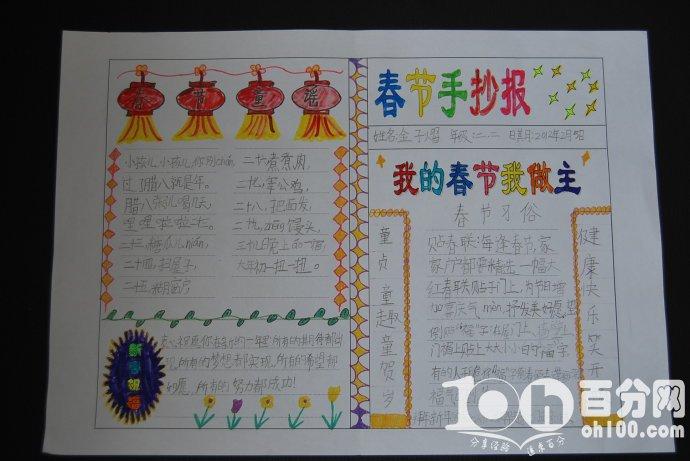 春节童谣
小孩儿,小孩儿,你别chán,
过了腊八就是年。
腊八粥儿喝几天,
哩哩啦啦二十三。
二十三,糖瓜儿nián,
二十四,扫屋子,
二十五,糊窗户
二十六,煮煮肉,
二十七,宰公鸡,
二十八,把面发,
二十九,蒸馒头,
三十儿晚上的一宿,
大年初一扭一扭。
新春祝福
衷心祝愿你在新的一年里,所有的期待都出
现,所有的梦想都实现,所有的希望都
如愿,所有的努力都成功!
春节手抄报
姓名:金子熠 年级:二、二 日期:2012年2月5日
我的春节我做主
春节习俗
童贞童趣童贺岁
贴春联:每逢春节,家
家户户都要精选一幅大
红春联贴于门上,为节日增
加喜庆气
倒贴"福"字:在屋门上、
门楣上贴上大大小小的"福"字
有的人
福气
健康快乐笑开
10h百分网
分享经验 追求百分
oh100.com